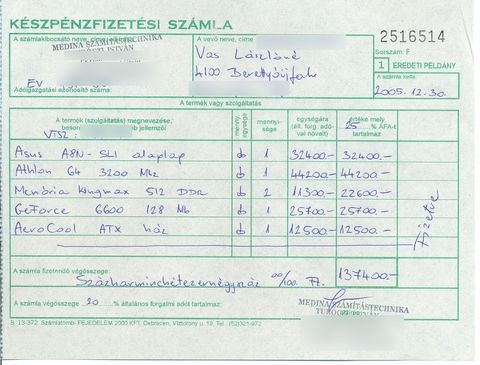 KÉSZPÉNZFIZETÉSI SZÁMLA
2516514
A számlakibocsátó neve, címe
A vevő neve, címe
Sorszám: F
MEDINA SZÁMÍTÁSTECHNIKA
ISTVÁN
Vas Lászlóné
4100 Berettyóújfalu
1 EREDETI PÉLDÁNY
A számla kelte:
EV
2005.12.30.
Adóigazgatási azonosító száma:
A termék vagy szolgáltatás
A termék (szolgáltatás) megnevezése, besorolási jellemzői
menny. egysége
mennyi-sége
egységára (áll. forg. adó-val növelt)
értéke mely 25 % ÁFA-t tartalmaz
VTSZ:
Asus A8N-SLI alaplap db 1 32400.- 32400.-
Athlon 64 3200 Mhz db 1 44200.- 44200.-
Memória Kingmax 512 DDR db 2 11300.- 22600.-
GeForce 6600 128 Mb db 1 25700.- 25700.-
AeroCool ATX ház db 1 12500.- 12500.-
Fizetve
A számla fizetendő végösszege:
137400.-
Százharminchétezernégyszáz 00/100 Ft.
A számla végösszege 20 % általános forgalmi adót tartalmaz:
MEDINA SZÁMÍTÁSTECHNIKA
B. 13-372. Számlatömb- FEJEDELEM 2000 KFT. Debrecen, Víztorony u. 19. Tel.: (52)321-972